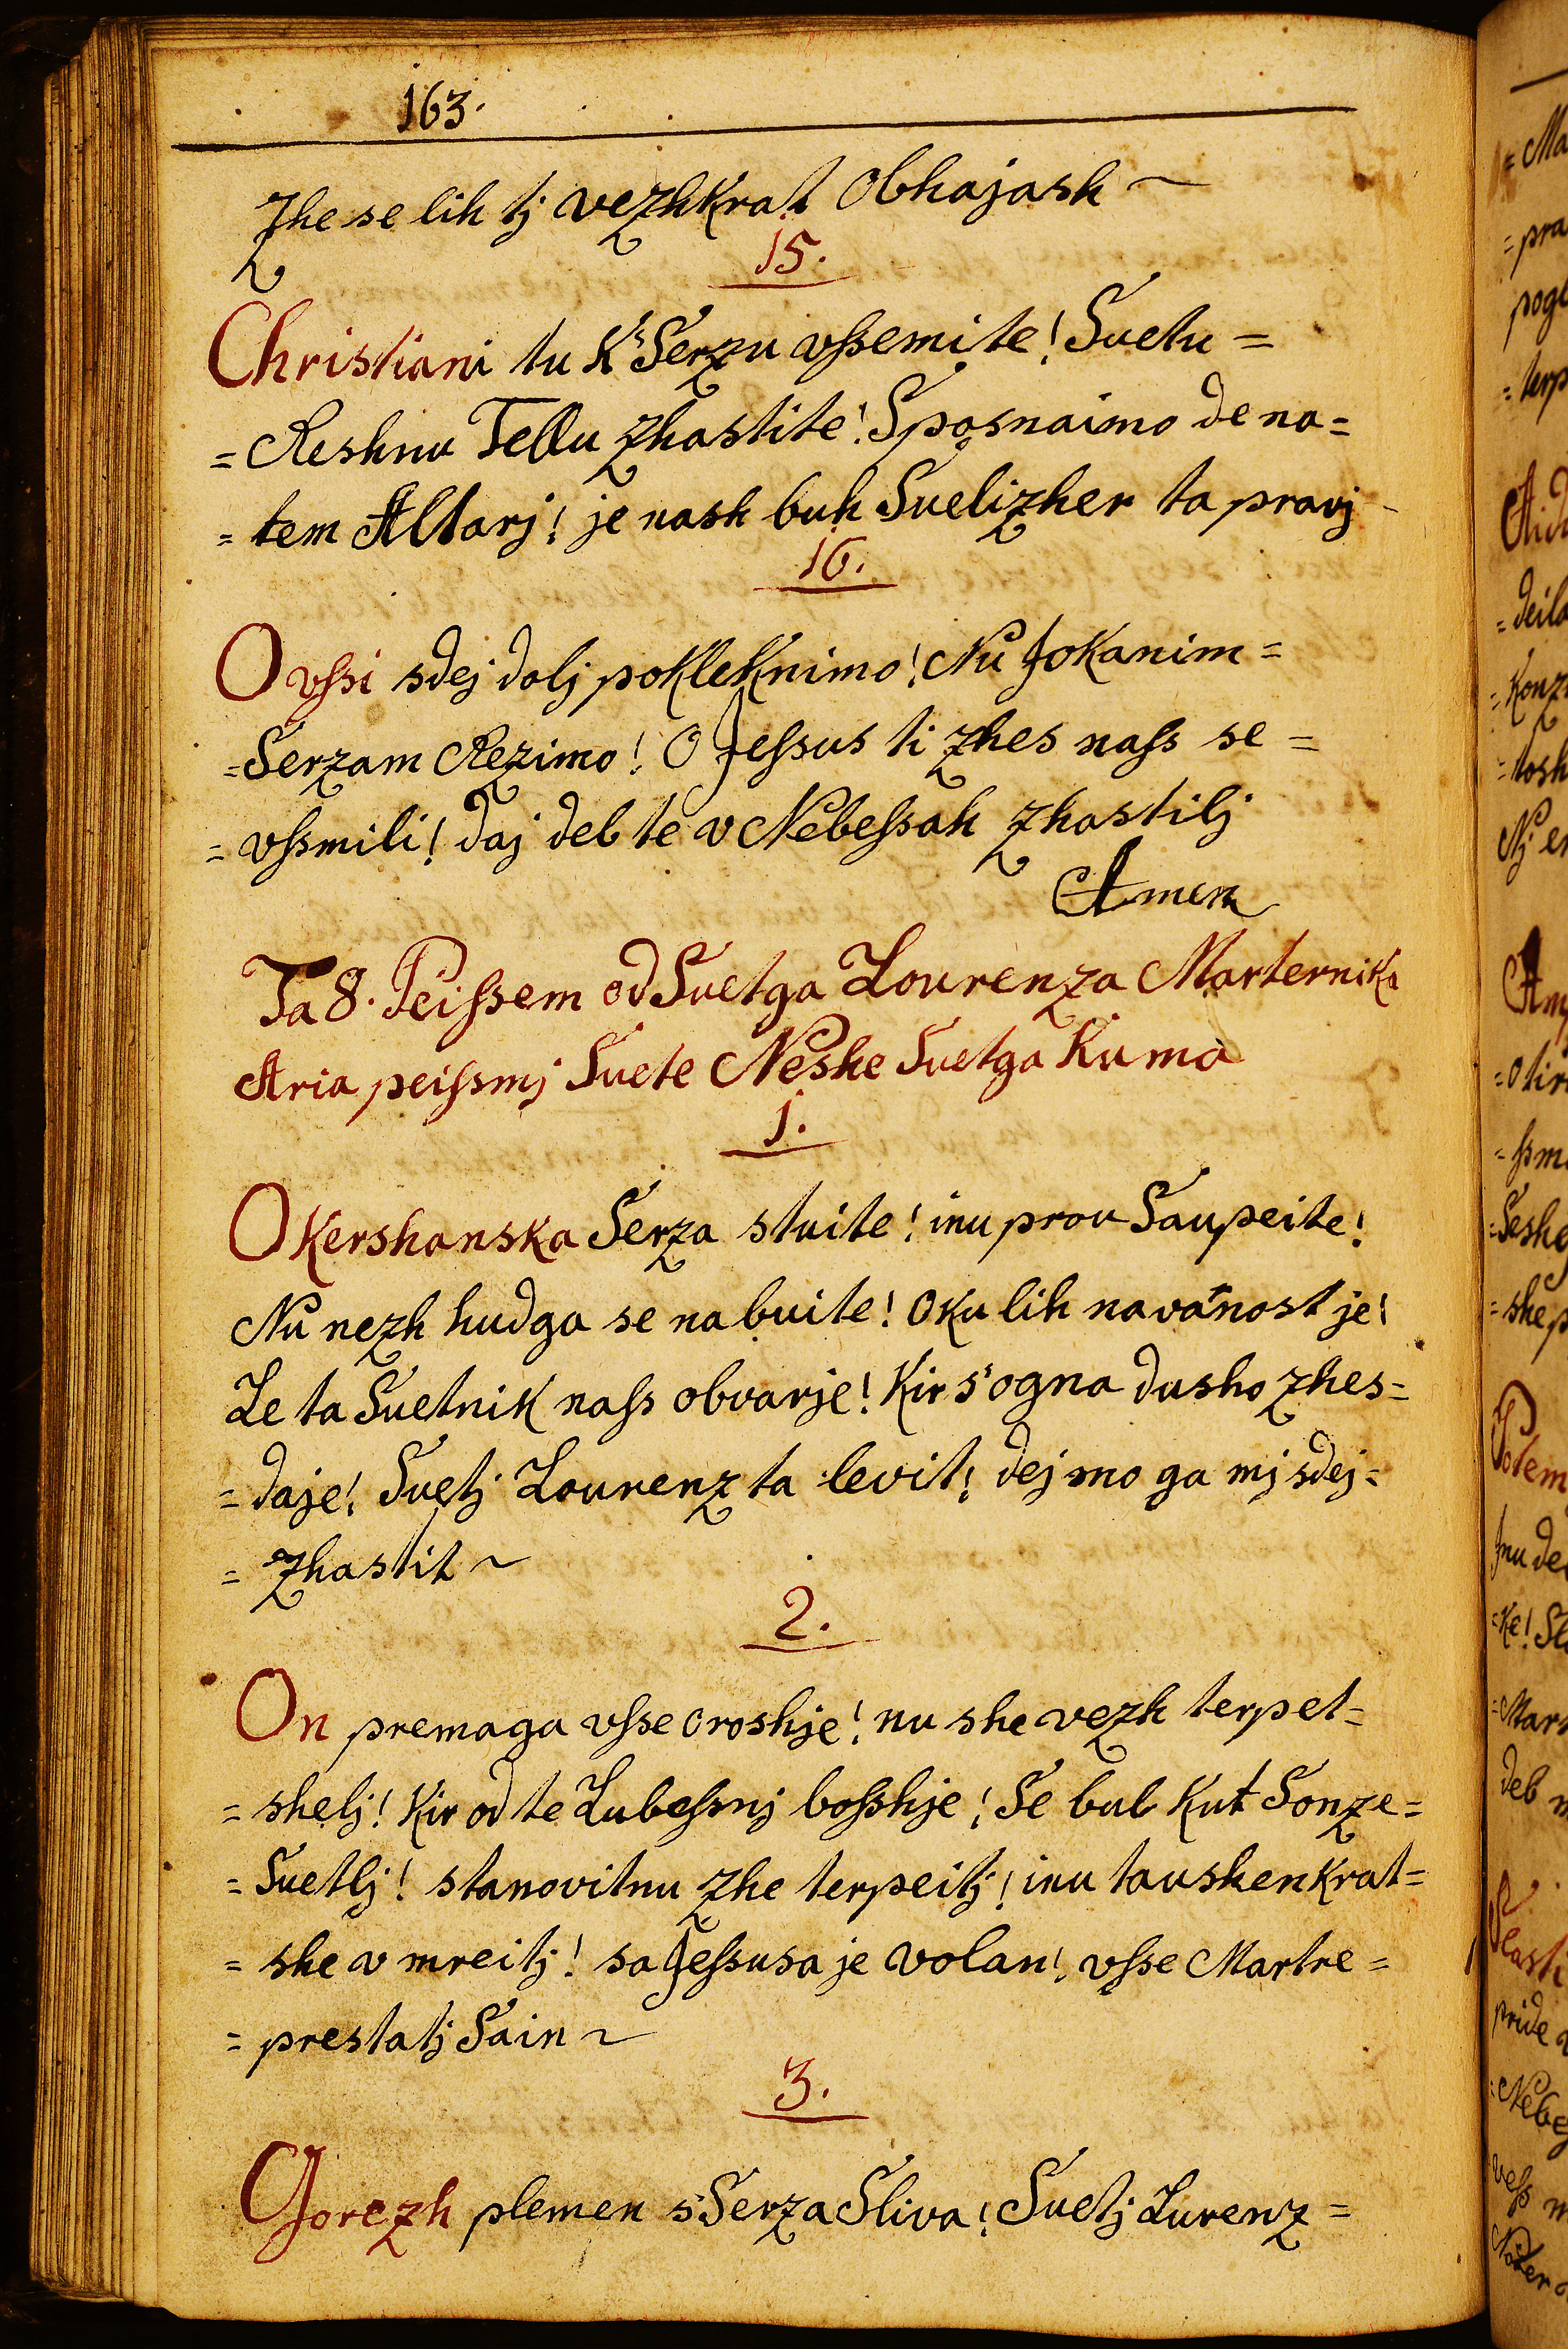 163.
Zhe se lih tj vezhkrat obhajash ~
15.
Christiani tu k' Serzu vſsemite! Suetu =
= Reshnu Tellu zhastite! Sposnaimo de na =
= tem Altarj! je nash buh Suelizher ta pravj
16.
O vſsi sdej dolj pokleknimo! Nu Jokanim =
= Serzam Rezimo! O Jeſsus ti zhes naſs se =
= vſsmili! daj deb te v Nebeſsah zhastilj
Amen
Ta 8. Peiſsem od Suetga Lourenza Marternika
Aria peiſsmj Suete Neshe Suetga Kuma
1.
O Kershanska Serza stuite! inu prou Saupeite!
Nu nezh hudga se na buite! oku lih navarnost je!
Le ta Suetnik naſs obvarje! Kir s'ogna dusho zhes =
= daje! Suetj Lourenz ta levit! dej mo ga mj sdej =
= Zhastit ~
2.
On premaga vſse oroshje! nu she vezh terpet =
= shelj! Kir od te Lubeſsnj boſshje! Se bul kut Sonze =
= Suetlj! stanovitnu zhe terpeitj! inu taushenkrat =
= she v mreitj! sa Jeſsusa je volan! vſse Martre =
= prestatj Sain ~
3.
Gorezh plemen s' Serza Sliva! Suetj Lurenz =